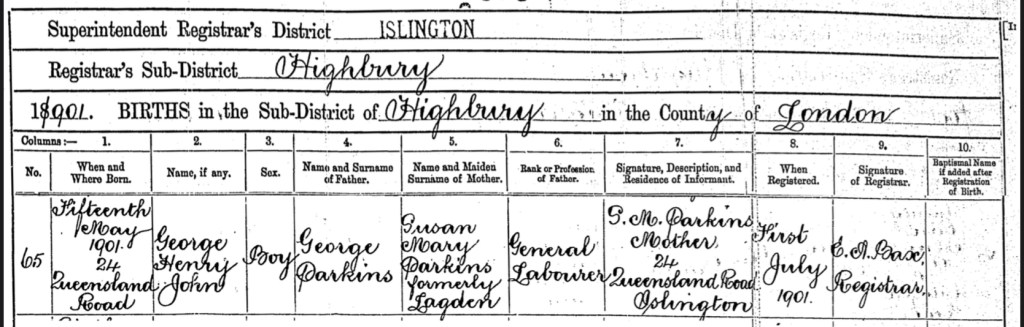 Superintendent Registrar's District ISLINGTON
Registrar's Sub-District Highbury
1901. BIRTHS in the Sub-District of Highbury in the County of London
Columns:— 1. 2. 3. 4. 5. 6. 7. 8. 9. 10.
No.
When and
Where Born.
Name, if any.
Sex.
Name and Surname
of Father.
Name and Maiden
Surname of Mother.
Rank or Profession
of Father.
Signature, Description, and
Residence of Informant.
When
Registered.
Signature
of Registrar.
Baptismal Name
if added after
Registration
of Birth.
65
Fifteenth
May
1901.
24
Queensland
Road
George
Henry
John
Boy
George
Parkins
Susan
Mary
Parkins
formerly
Lagden
General
Labourer
S. M. Parkins
Mother
24
Queensland Road
Islington
First
July
1901.
E. A. Bax,
Registrar.